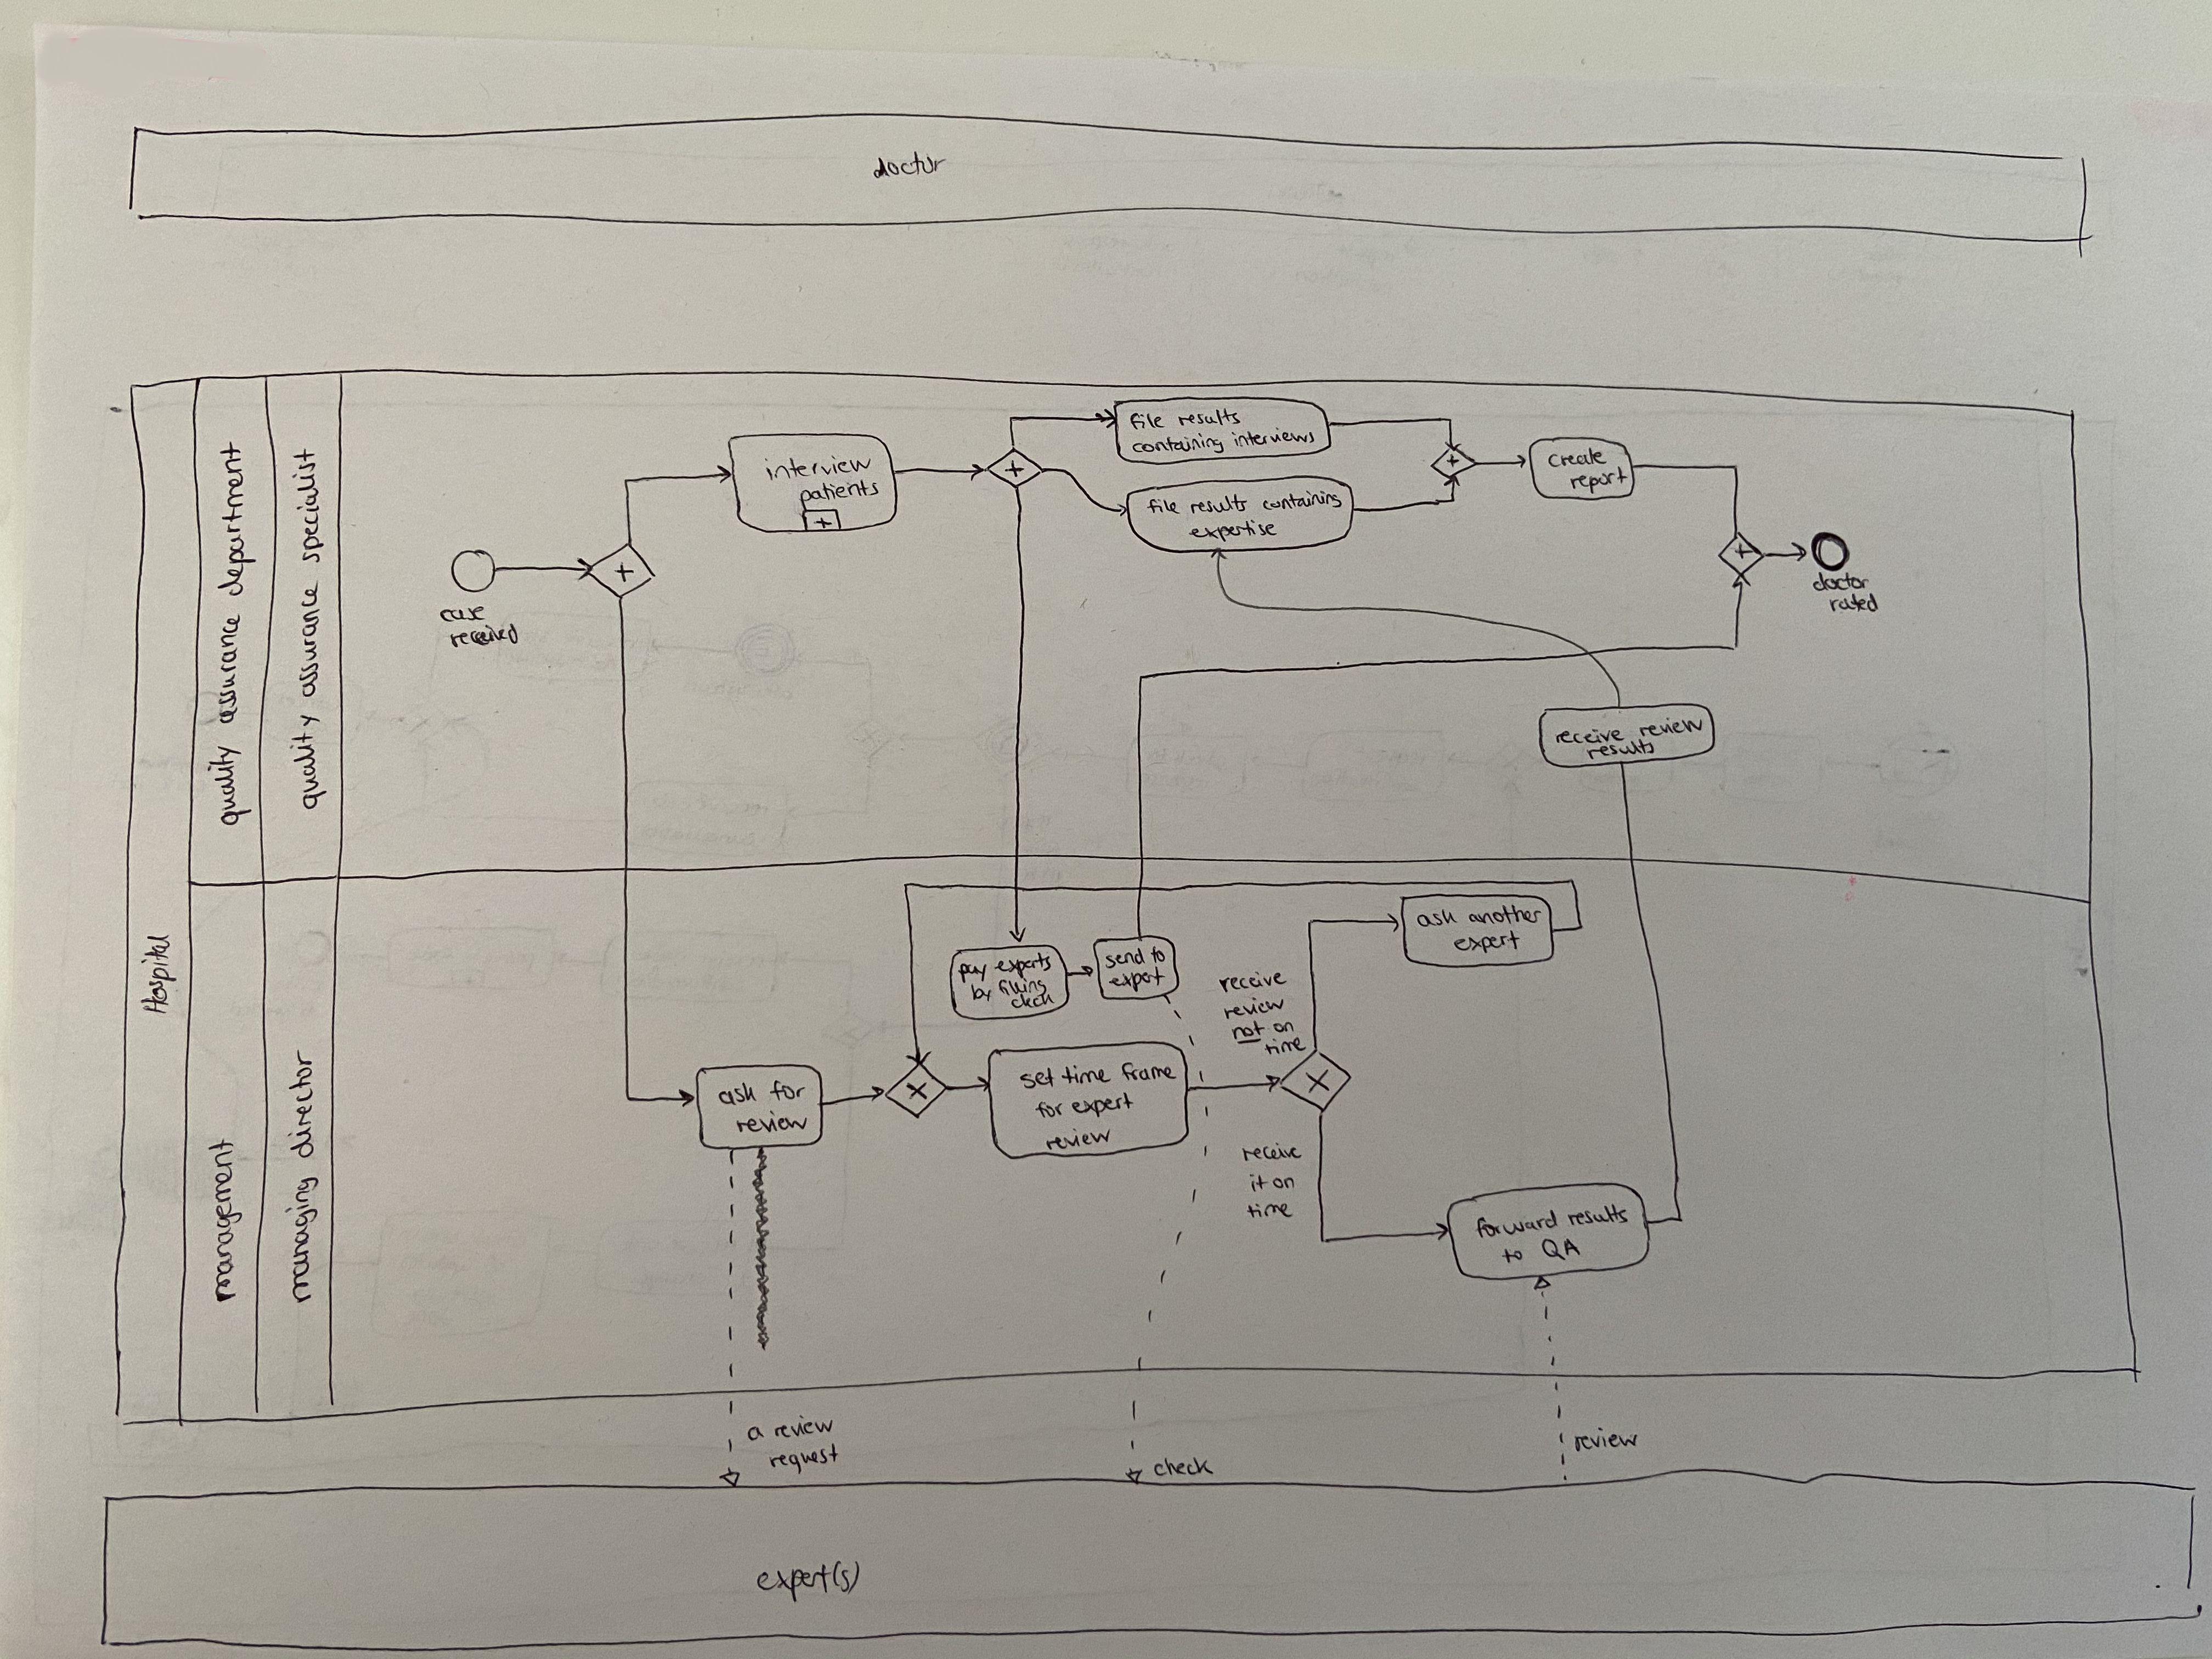 doctor
Hospital
quality assurance department
quality assurance specialist
management
managing director
case
received
interview
patients
file results
containing interviews
file results containing
expertise
create
report
doctor
rated
receive review
results
pay experts
by filling
send to
expert
ask another
expert
receive
review
not on
time
ask for
review
set time frame
for expert
review
receive
it on
time
forward results
to QA
a review
request
check
review
expert(s)